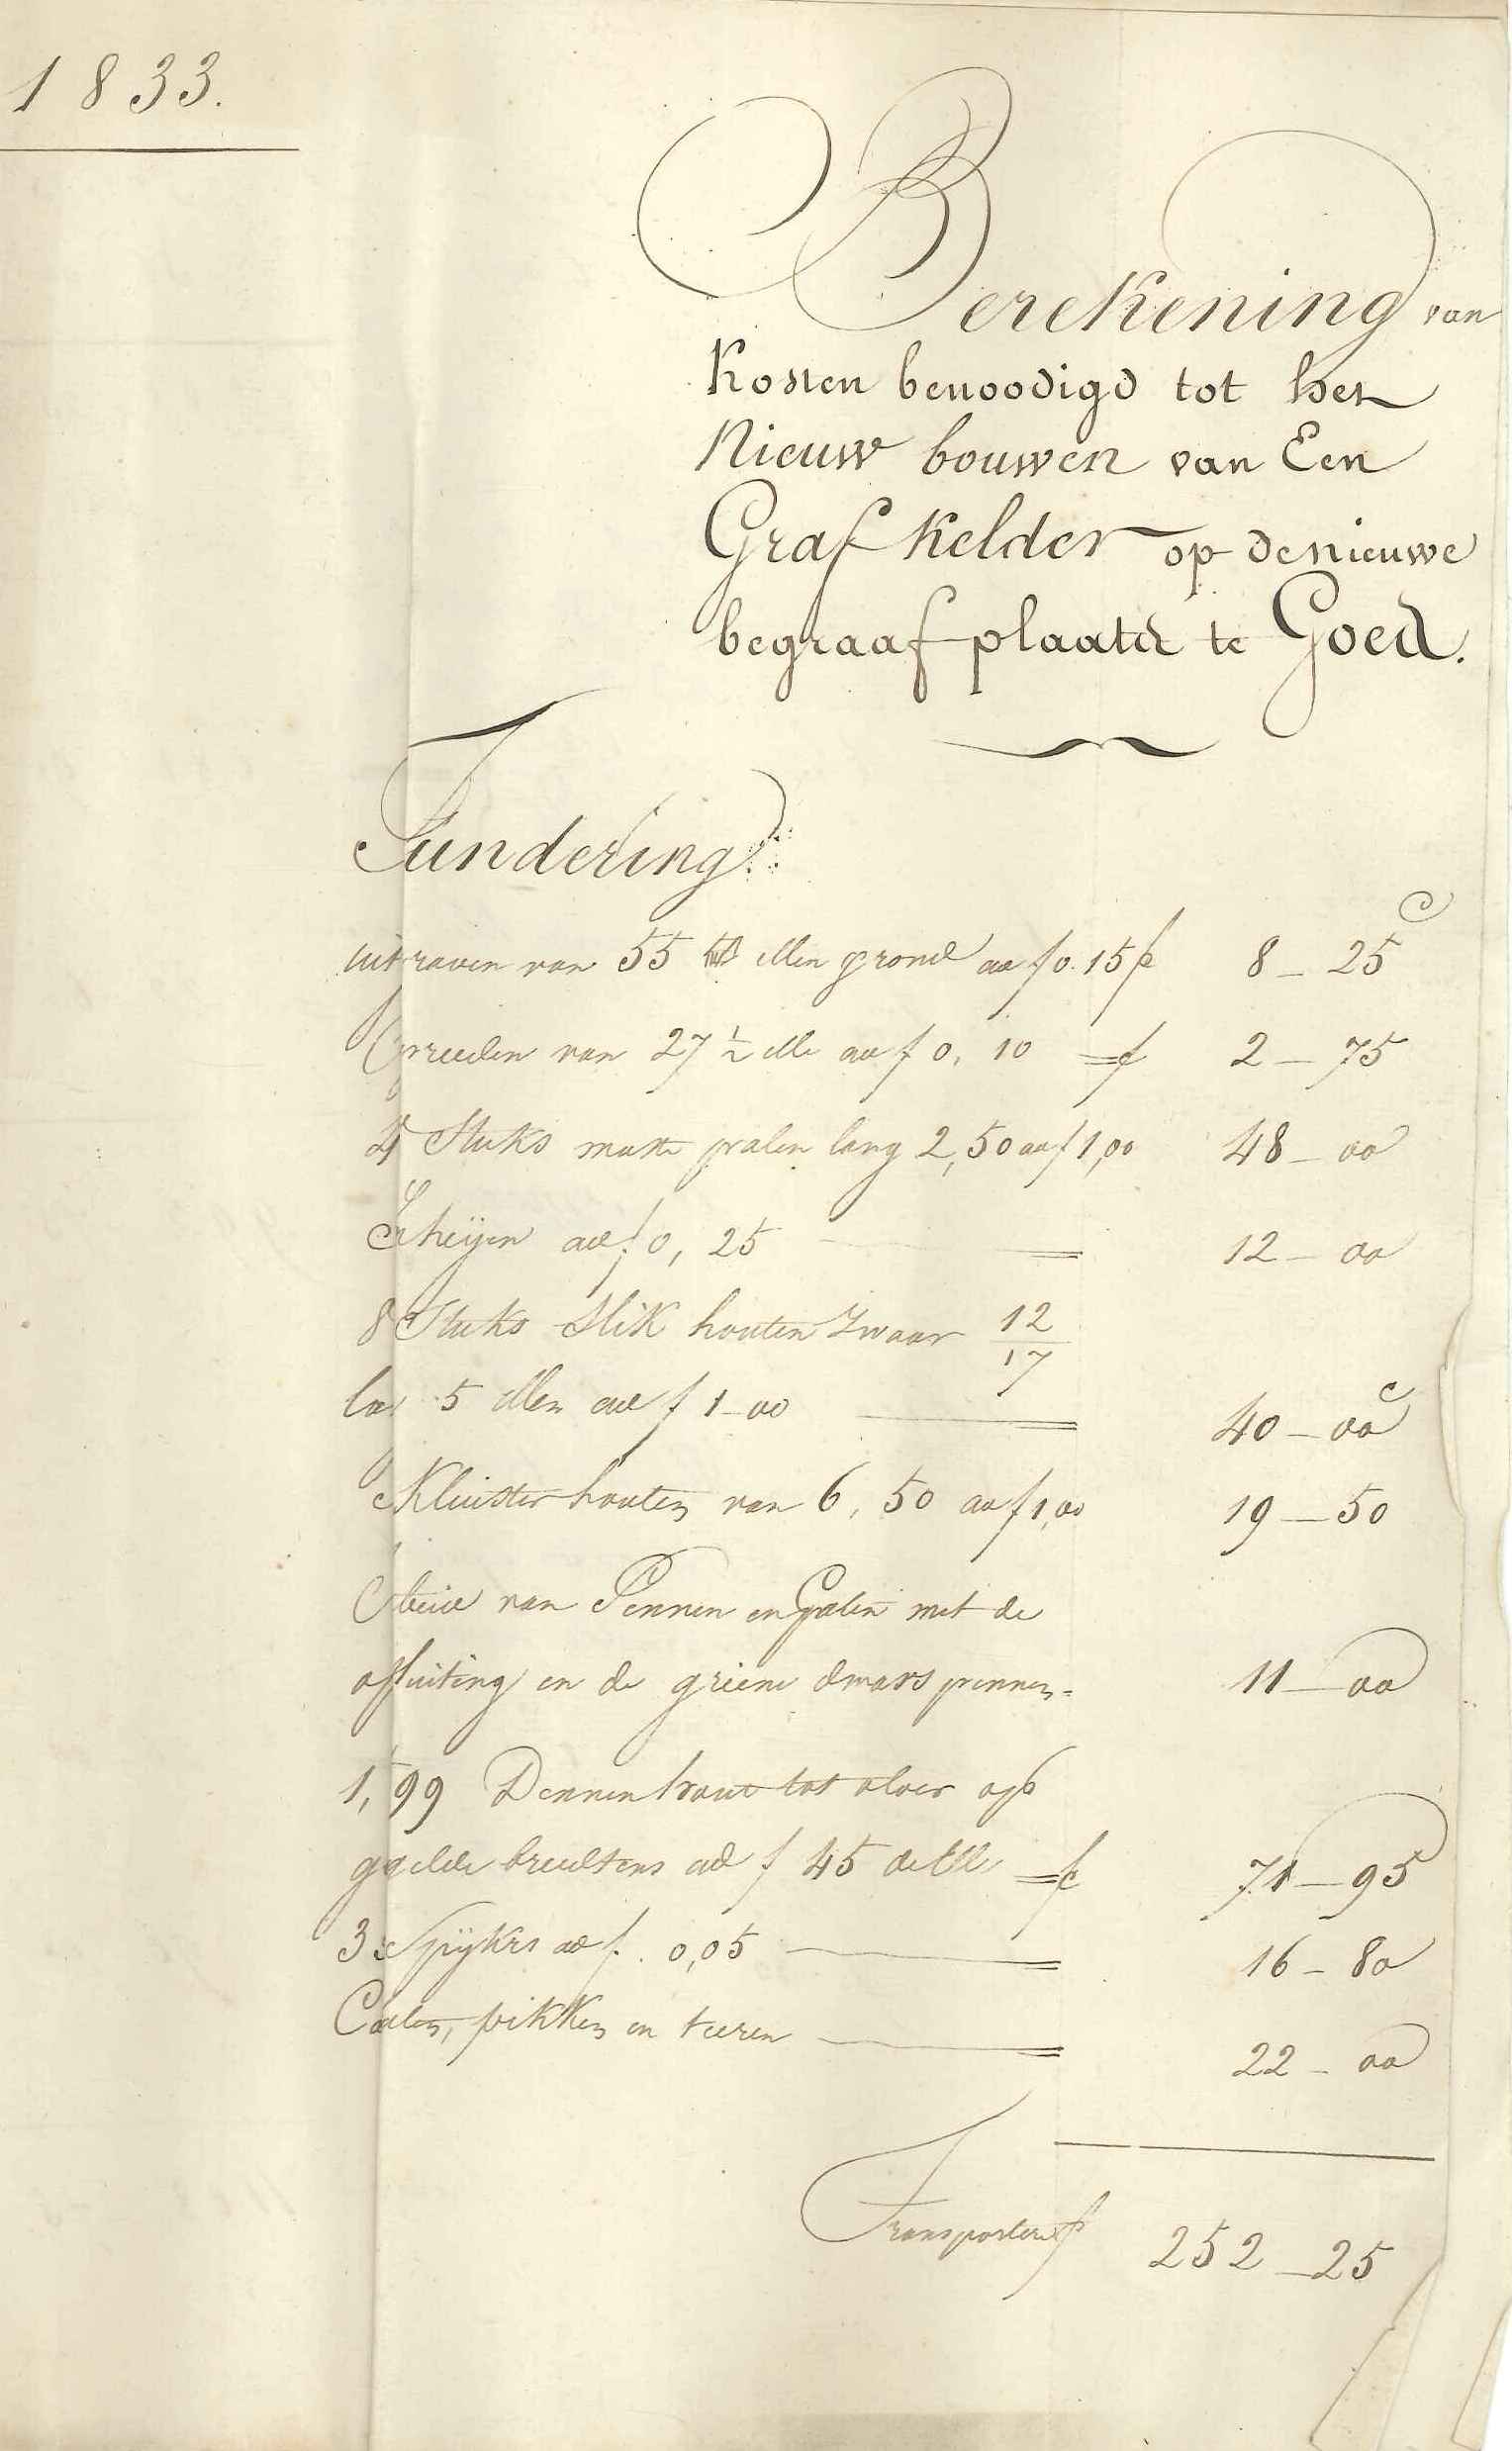 1833.
Berekening van
Kosten benoodigd tot het
Nieuw bouwen van Een
Graf Kelder op de nieuwe
begraafplaats te Goes.
Fundering
van 55 ellen grond ad f 0.15 f 8 – 25 c
van 27 ½ elle ad f 0,10 = f 2 – 75
Stuks palen lang 2,50 ad f 1,00 48 – 00
ad f 0,25 = 12 – 00
8 Stuks Slik houten Zwaar 12/17
5 ellen ad f 1–00 = 40 – 00 c
Kluister houten van 6,50 ad f 1,00 19 – 50
van Pennen en met de
en de dwars pennen = 11 – 00
1,99 Dennenhout tot vloer op
ad f 45 de Elle = f 71 – 95
Spykers ad f. 0,05 = 16 – 80
pikken en teeren = 22 – 00
Transportere f 252 – 25